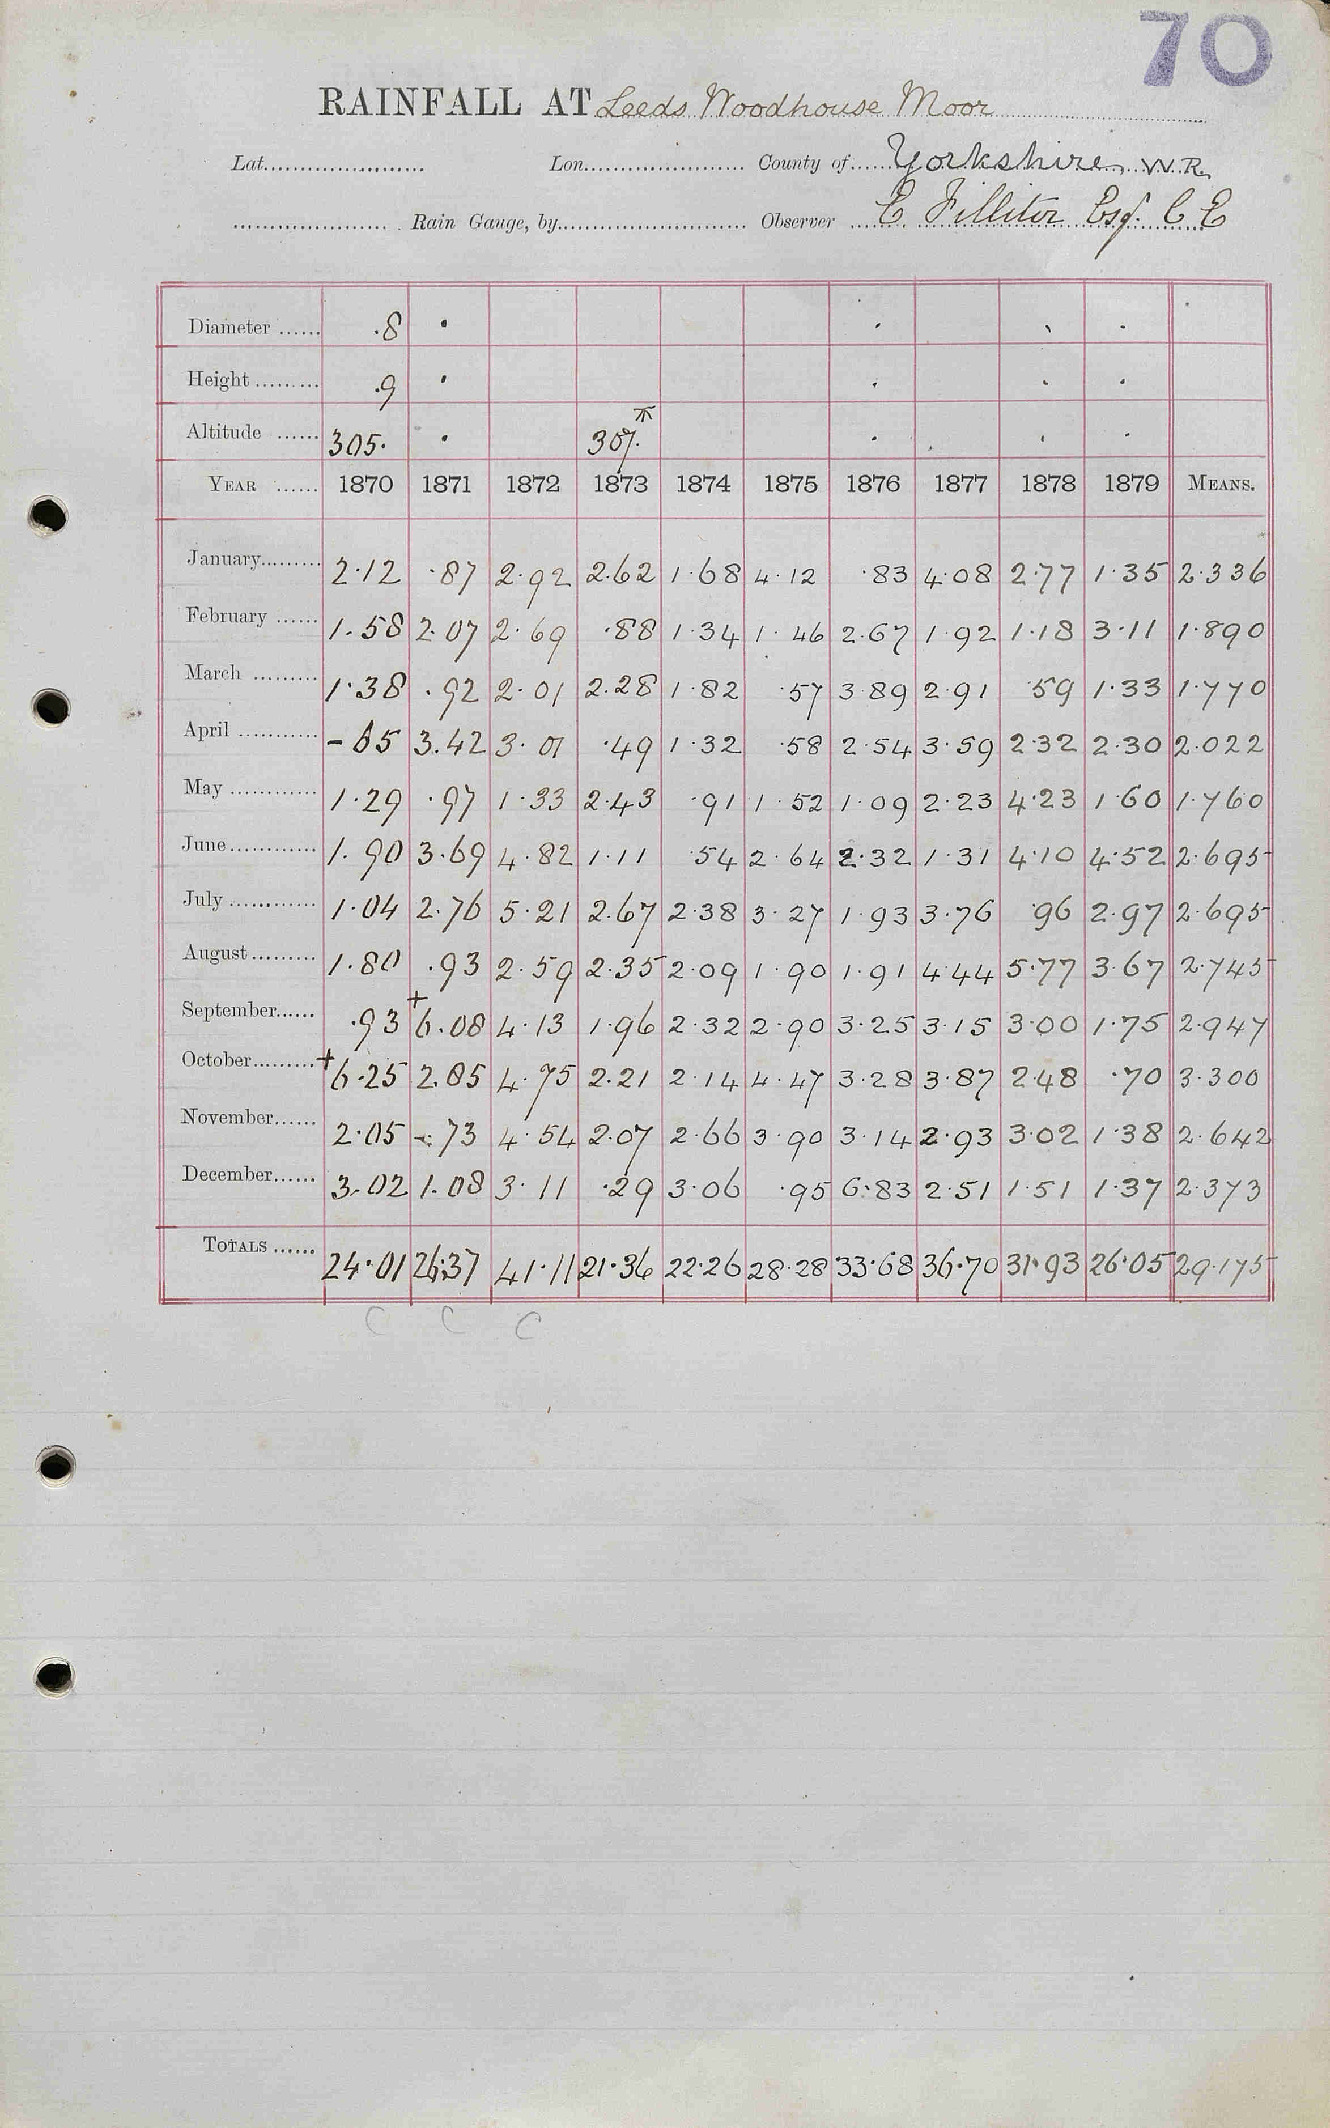 70
RAINFALL AT Leeds Woodhouse Moor
Lat. Lon. County of Yorkshire, W.R.
Rain Gauge, by Observer C Filliter Esq. C E
Diameter ...... .8 ·
Height ......... .9 ·
Altitude ...... 305. · 307.
YEAR ...... 1870 1871 1872 1873 1874 1875 1876 1877 1878 1879 MEANS.
January......... 2.12 .87 2.92 2.62 1.68 4.12 .83 4.08 2.77 1.35 2.336
February ...... 1.58 2.07 2.69 .88 1.34 1.46 2.67 1.92 1.18 3.11 1.890
March ......... 1.38 .92 2.01 2.28 1.82 .57 3.89 2.91 .59 1.33 1.770
April ............ -65 3.42 3.01 .49 1.32 .58 2.54 3.59 2.32 2.30 2.022
May ............ 1.29 .97 1.33 2.43 .91 1.52 1.09 2.23 4.23 1.60 1.760
June............ 1.90 3.69 4.82 1.11 .54 2.64 2.32 1.31 4.10 4.52 2.695
July ............ 1.04 2.76 5.21 2.67 2.38 3.27 1.93 3.76 .96 2.97 2.695
August......... 1.80 .93 2.59 2.35 2.09 1.90 1.91 4.44 5.77 3.67 2.745
September...... .93 +6.08 4.13 1.96 2.32 2.90 3.25 3.15 3.00 1.75 2.947
October......... +6.25 2.85 4.75 2.21 2.14 4.47 3.28 3.87 2.48 .70 3.300
November...... 2.05 .73 4.54 2.07 2.66 3.90 3.14 2.93 3.02 1.38 2.642
December...... 3.02 1.08 3.11 .29 3.06 .95 6.83 2.51 1.51 1.37 2.373
TOTALS ...... 24.01 26.37 41.11 21.36 22.26 28.28 33.68 36.70 31.93 26.05 29.175
C C C